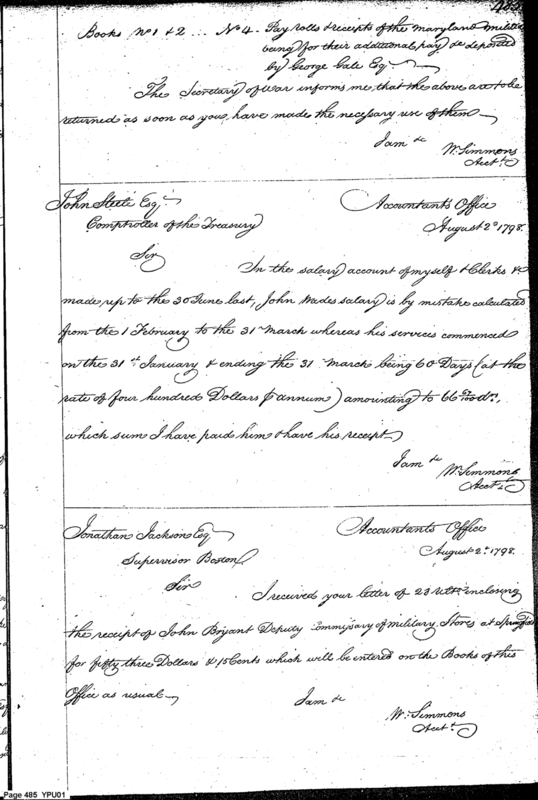 485
Books No 1 & 2 ... No 4. Pay rolls & receipts of the Maryland Militia
being for their additional pay &c deposited
by George Gale Esqr
The Secretary of War informs me, that the above are to be
returned as soon as you have made the necessary use of them
I am &c
Wm Simmons
Acct
John Steele Esqr
Comptroller of the Treasury
Accountants Office
August 2d 1798.
Sir
In the salary account of myself & Clerks &c
made up to the 30 June last, John Wades salary is by mistake calculated
from the 1 February to the 31 March whereas his services commenced
on the 31st January & ending the 31 March being 60 Days (at the
rate of four hundred Dollars ⅌ annum) amounting to 66 Do.,
which sum I have paid him & have his receipt
I am &c
Wm Simmons
Acct
Jonathan Jackson Esqr
Supervisor Boston
Accountants Office
August 2d 1798.
Sir
I received your letter of 23 Ulto. inclosing
the receipt of John Bryant Deputy Commissary of Military Stores at Springfield
for fifty three Dollars & 15 Cents which will be entered on the Books of this
Office as usual
I am &c
W. Simmons
Acct
Page 485 YPU01